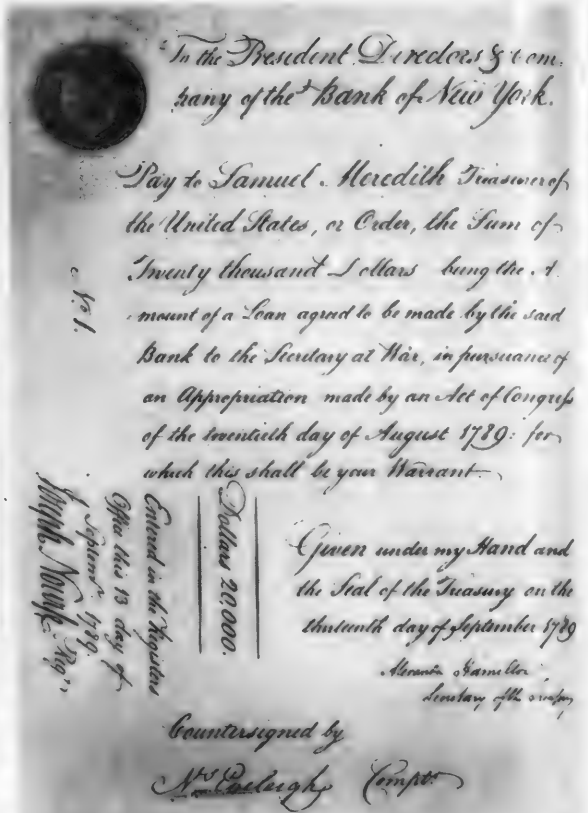 To the President Directors & Com-
pany of the Bank of New York.
Pay to Samuel Meredith Treasurer of
the United States, or Order, the Sum of
Twenty thousand Dollars being the A
mount of a Loan agreed to be made by the said
Bank to the Secretary at War, in pursuance of
an Appropriation made by an Act of Congress
of the twentieth day of August 1789: for
which this shall be your Warrant.
No 1.
Dollars 20,000.
Entered in the Registers
Office this 13 day of
Septemr. 1789.
Joseph Nourse Regr.
Given under my Hand and
the Seal of the Treasury on the
thirteenth day of September 1789
Alexander Hamilton
Secretary of the Treasury
Countersigned by
Eveleigh Comptr.